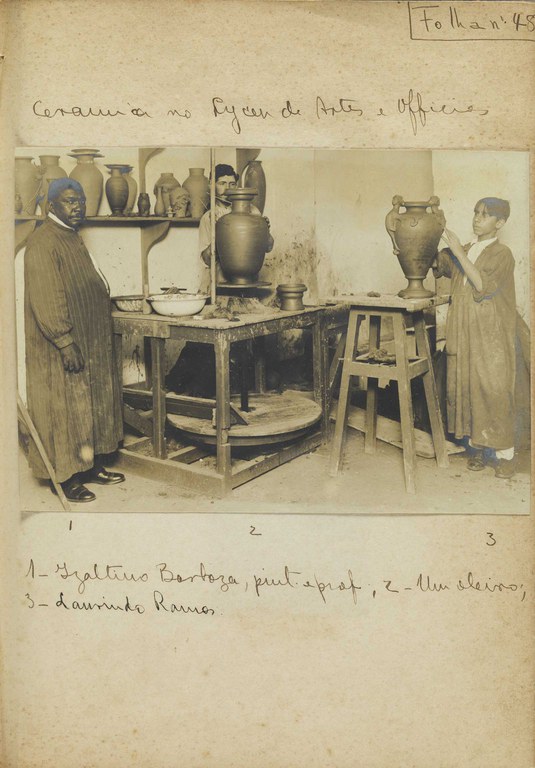 Folha nº 48
Ceramica no Lyceu de Artes e Officios
1
2
3
1- Izaltino Barboza, pint. e prof., 2- Um oleiro;
3- Laurindo Ramos